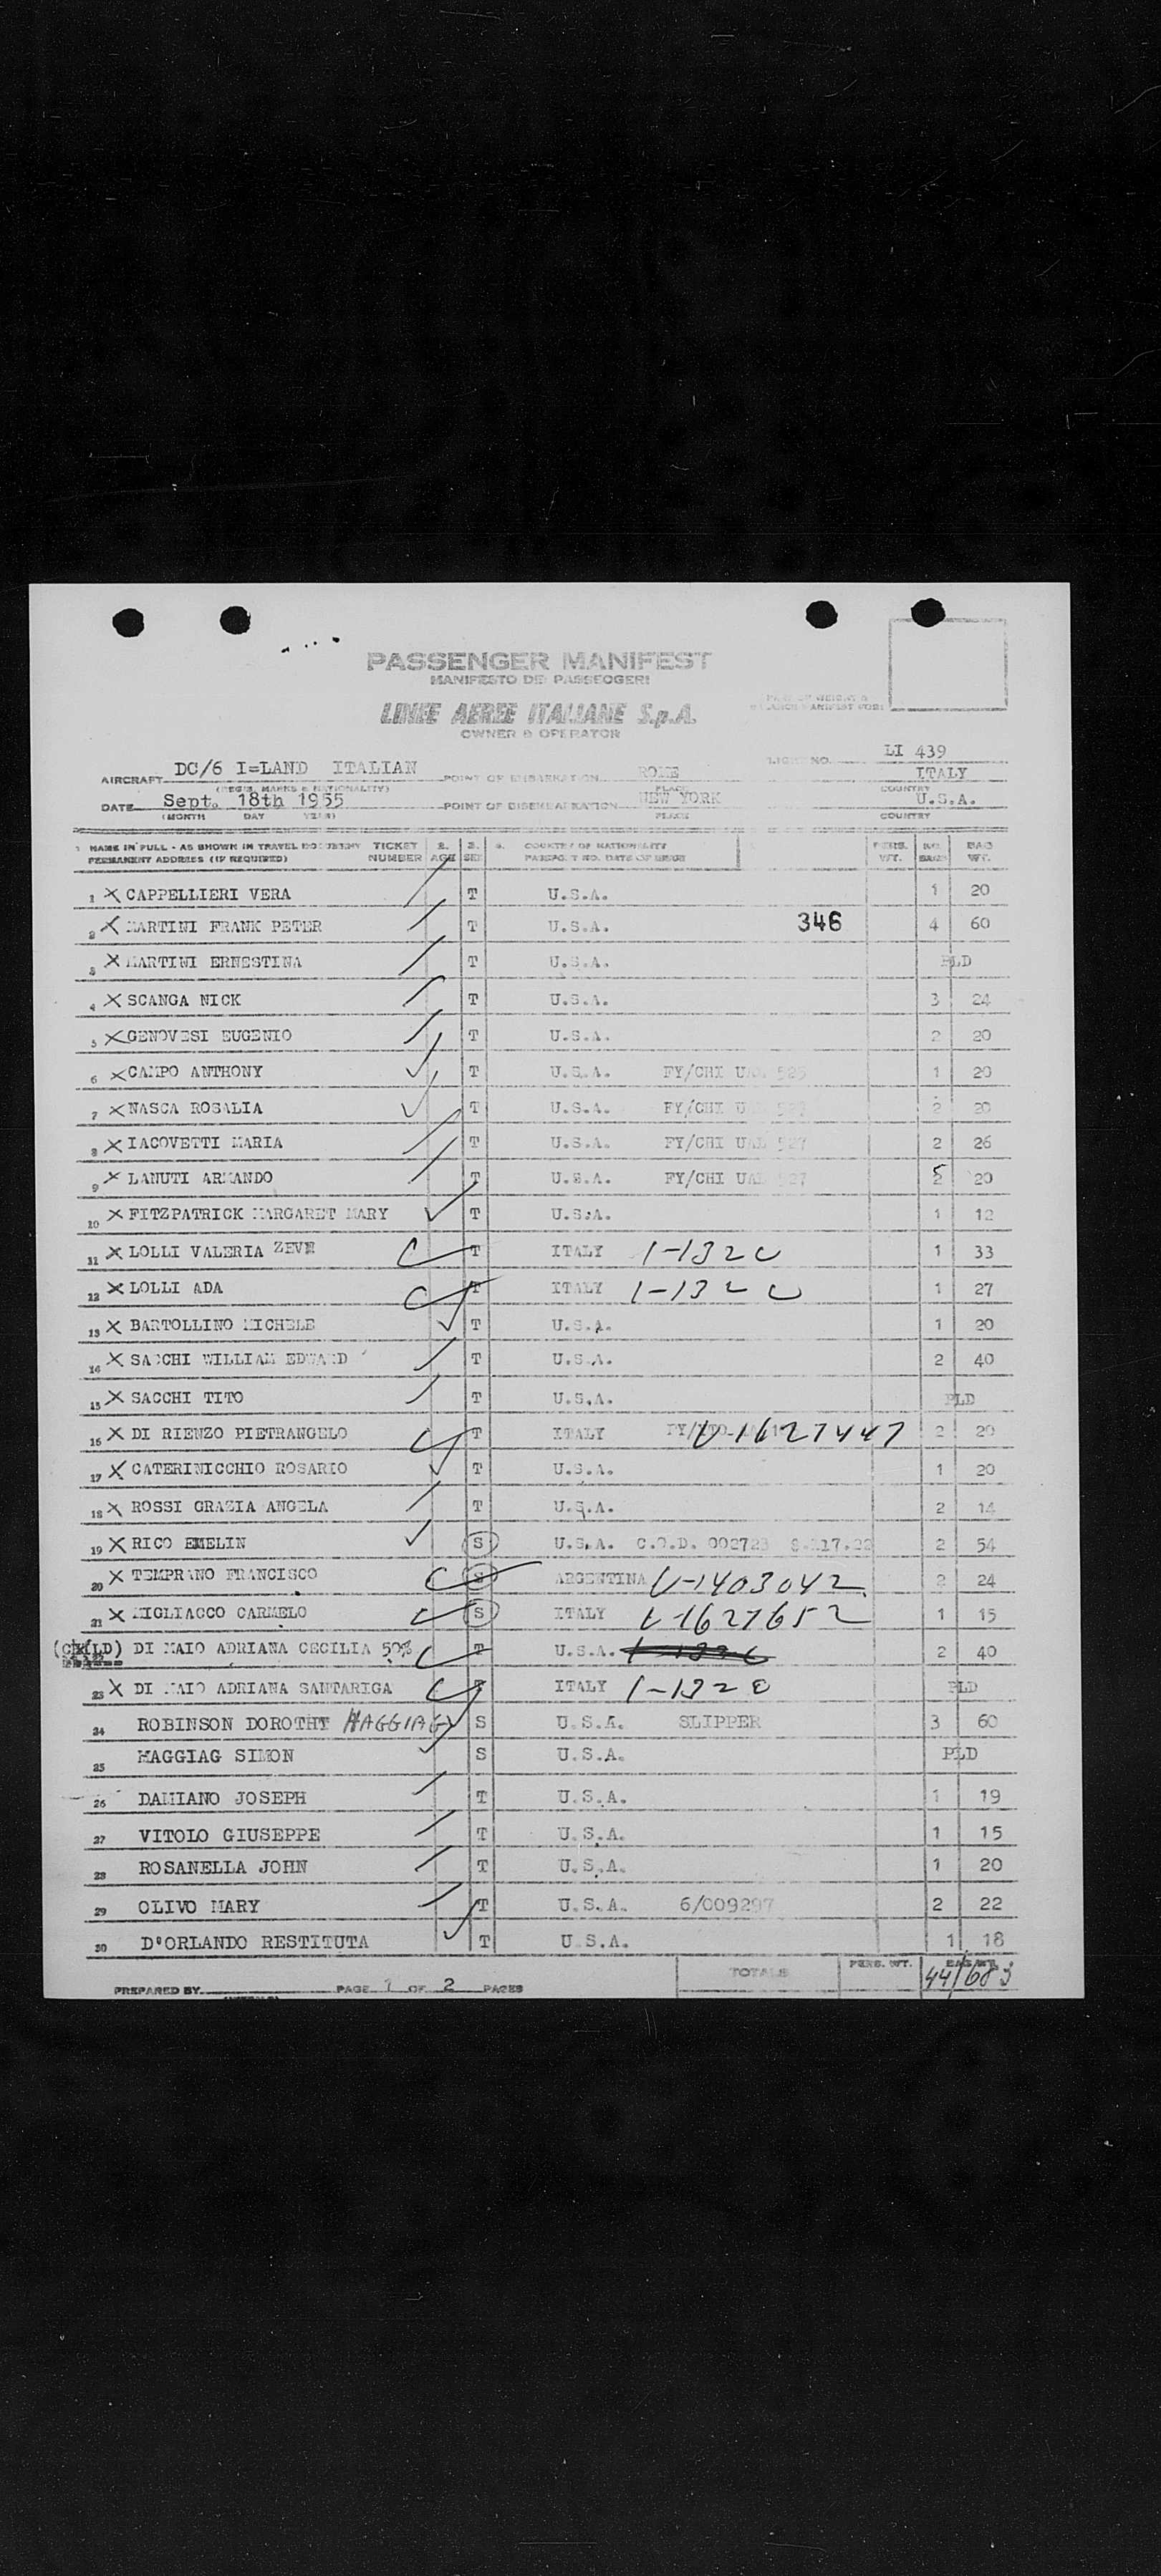 PASSENGER MANIFEST
MANIFESTO DEI PASSEGGERI
LINEE AEREE ITALIANE S.p.A.
OWNER & OPERATOR
LI 439
AIRCRAFT DC/6 I=LAND ITALIAN POINT OF EMBARKATION ROME ITALY
(REGIS. MARKS & NATIONALITY) PLACE COUNTRY
DATE Sept. 18th 1955 POINT OF DISEMBARKATION NEW YORK U.S.A.
(MONTH DAY YEAR) PLACE COUNTRY
1 NAME IN FULL - AS SHOWN IN TRAVEL DOCUMENT TICKET 2. 3. 4. COUNTRY OF NATIONALITY PERS. NO. BAG
PERMANENT ADDRESS (IF REQUIRED) NUMBER AGE SEX PASSPORT NO. DATE OF BIRTH WT. BAGS WT.
1 X CAPPELLIERI VERA T U.S.A. 1 20
2 X MARTINI FRANK PETER T U.S.A. 346 4 60
3 X MARTINI ERNESTINA T U.S.A. PLD
4 X SCANGA NICK T U.S.A. 3 24
5 X GENOVESI EUGENIO T U.S.A. 2 20
6 X CAMPO ANTHONY T U.S.A. FY/CHI UAL 525 1 20
7 X NASCA ROSALIA T U.S.A. FY/CHI UAL 527 2 20
8 X IACOVETTI MARIA T U.S.A. FY/CHI UAL 527 2 26
9 X LANUTI ARMANDO T U.S.A. FY/CHI UAL 527 5 2 20
10 X FITZPATRICK MARGARET MARY T U.S.A. 1 12
11 X LOLLI VALERIA ZEVE T ITALY 1-132C 1 33
12 X LOLLI ADA T ITALY 1-132C 1 27
13 X BARTOLLINO MICHELE T U.S.A. 1 20
14 X SACCHI WILLIAM EDWARD T U.S.A. 2 40
15 X SACCHI TITO T U.S.A. PLD
16 X DI RIENZO PIETRANGELO T ITALY V-1627447 2 20
17 X CATERINICCHIO ROSARIO T U.S.A. 1 20
18 X ROSSI GRAZIA ANGELA T U.S.A. 2 14
19 X RICO EMELIN S U.S.A. C.O.D. 002723 2 54
20 X TEMPRANO FRANCISCO S ARGENTINA V-1403042 2 24
21 X MIGLIACCO CARMELO S ITALY V-1627652 1 15
(CHILD) DI MAIO ADRIANA CECILIA 50% T U.S.A. 2 40
23 X DI MAIO ADRIANA SANTARIGA T ITALY 1-132C PLD
24 ROBINSON DOROTHY HAGGIAG S U.S.A. SLIPPER 3 60
25 HAGGIAG SIMON S U.S.A. PLD
26 DAMIANO JOSEPH T U.S.A. 1 19
27 VITOLO GIUSEPPE T U.S.A. 1 15
28 ROSANELLA JOHN T U.S.A. 1 20
29 OLIVO MARY T U.S.A. 6/009297 2 22
30 D'ORLANDO RESTITUTA T U.S.A. 1 18
TOTALS PERS. WT. BAG WT.
44/683
PREPARED BY PAGE 1 OF 2 PAGES